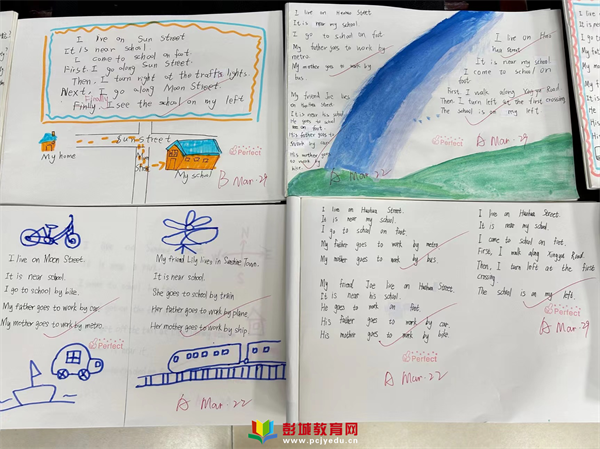 I live on Sun Street
It is near school
I come to school on foot.
First. I go along Sun Street
Then, I turn right at the traffic lights.
Next, I go along Moon Street.
Finally
I see the school on my left
Sun Street
My home
My school
Perfect
B Mar.29
It is near my school.
I go to school on foot
My father goes to work by
metro.
My mother goes to work by
bus.
My friend Joe live on
His father goes to
work by car.
His mother goes
to work by
A Mar.22
I live on
It is near my school
I come to school on
foot.
First, I walk along Xingye Road.
Then, I turn left at the first
crossing.
The school is on my left.
A Mar.29
I live on Moon Street.
It is near school.
I go to school by bike.
My father goes to work by car.
My mother goes to work by metro.
Perfect
My friend Lily lives in Sunshine Town.
It is near school.
She goes to school by train
Her father goes to work by plane
Her mother goes to work by ship
A Mar.22
I live on Huaihua Street.
It is near my school.
I go to school on foot.
My father goes to work by metro.
My mother goes to work by bus.
My friend Joe live on Huaihua Street.
It is near his school.
He goes to work on foot.
His father goes to work by car.
His mother goes to work by bike.
Perfect
A Mar.22
I live on Huaihua Street.
It is near my school.
I come to school on foot.
First, I walk along Xingye Road.
Then, I turn left at the first
crossing
The school is on my left.
Perfect
A Mar.29
彭城教育网
www.pcjyedu.cn